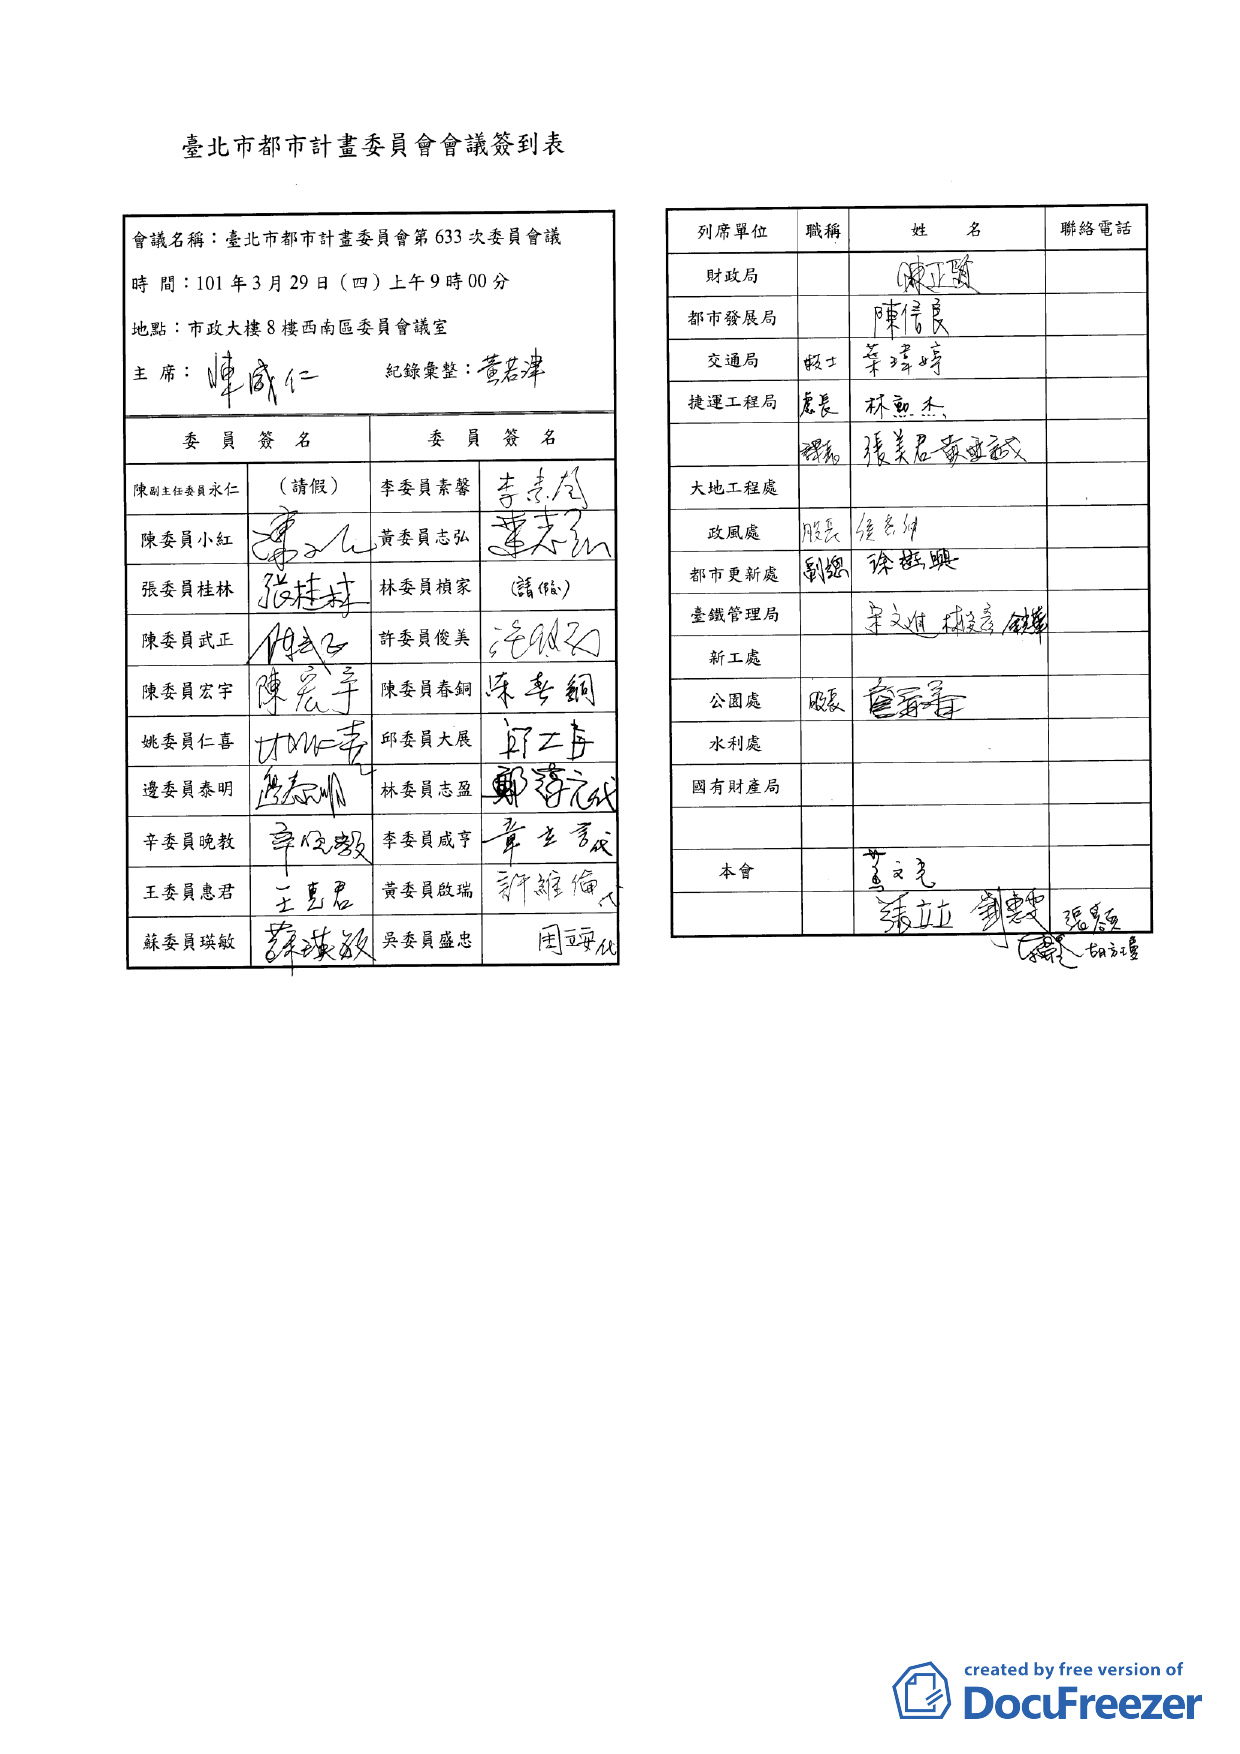 臺北市都市計畫委員會會議簽到表
會議名稱：臺北市都市計畫委員會第 633 次委員會議
時 間：101 年 3 月 29 日（四）上午 9 時 00 分
地點：市政大樓 8 樓西南區委員會議室
主 席： 陳威仁 紀錄彙整：黃若津
委 員 簽 名 委 員 簽 名
陳副主任委員永仁 （請假） 李委員素馨 李素馨
陳委員小紅 黃委員志弘 黃志弘
張委員桂林 張桂林 林委員楨家 (請假)
陳委員武正 陳武正 許委員俊美 許俊美
陳委員宏宇 陳宏宇 陳委員春銅 陳春銅
姚委員仁喜 姚仁喜 邱委員大展
邊委員泰明 邊泰明 林委員志盈 鄭淳元代
辛委員晚教 辛晚教 李委員咸亨 章立言代
王委員惠君 王惠君 黃委員啟瑞 許維倫代
蘇委員瑛敏 蘇瑛敏 吳委員盛忠 代
列席單位 職稱 姓 名 聯絡電話
財政局 陳正賢
都市發展局 陳信良
交通局 技士 葉瑋婷
捷運工程局 處長 林勳杰
張美君
大地工程處
政風處 股長
都市更新處 副總
臺鐵管理局 宋文進
新工處
公園處 股長
水利處
國有財產局
本會
張立立 劉惠雯
胡方瓊
created by free version of
DocuFreezer